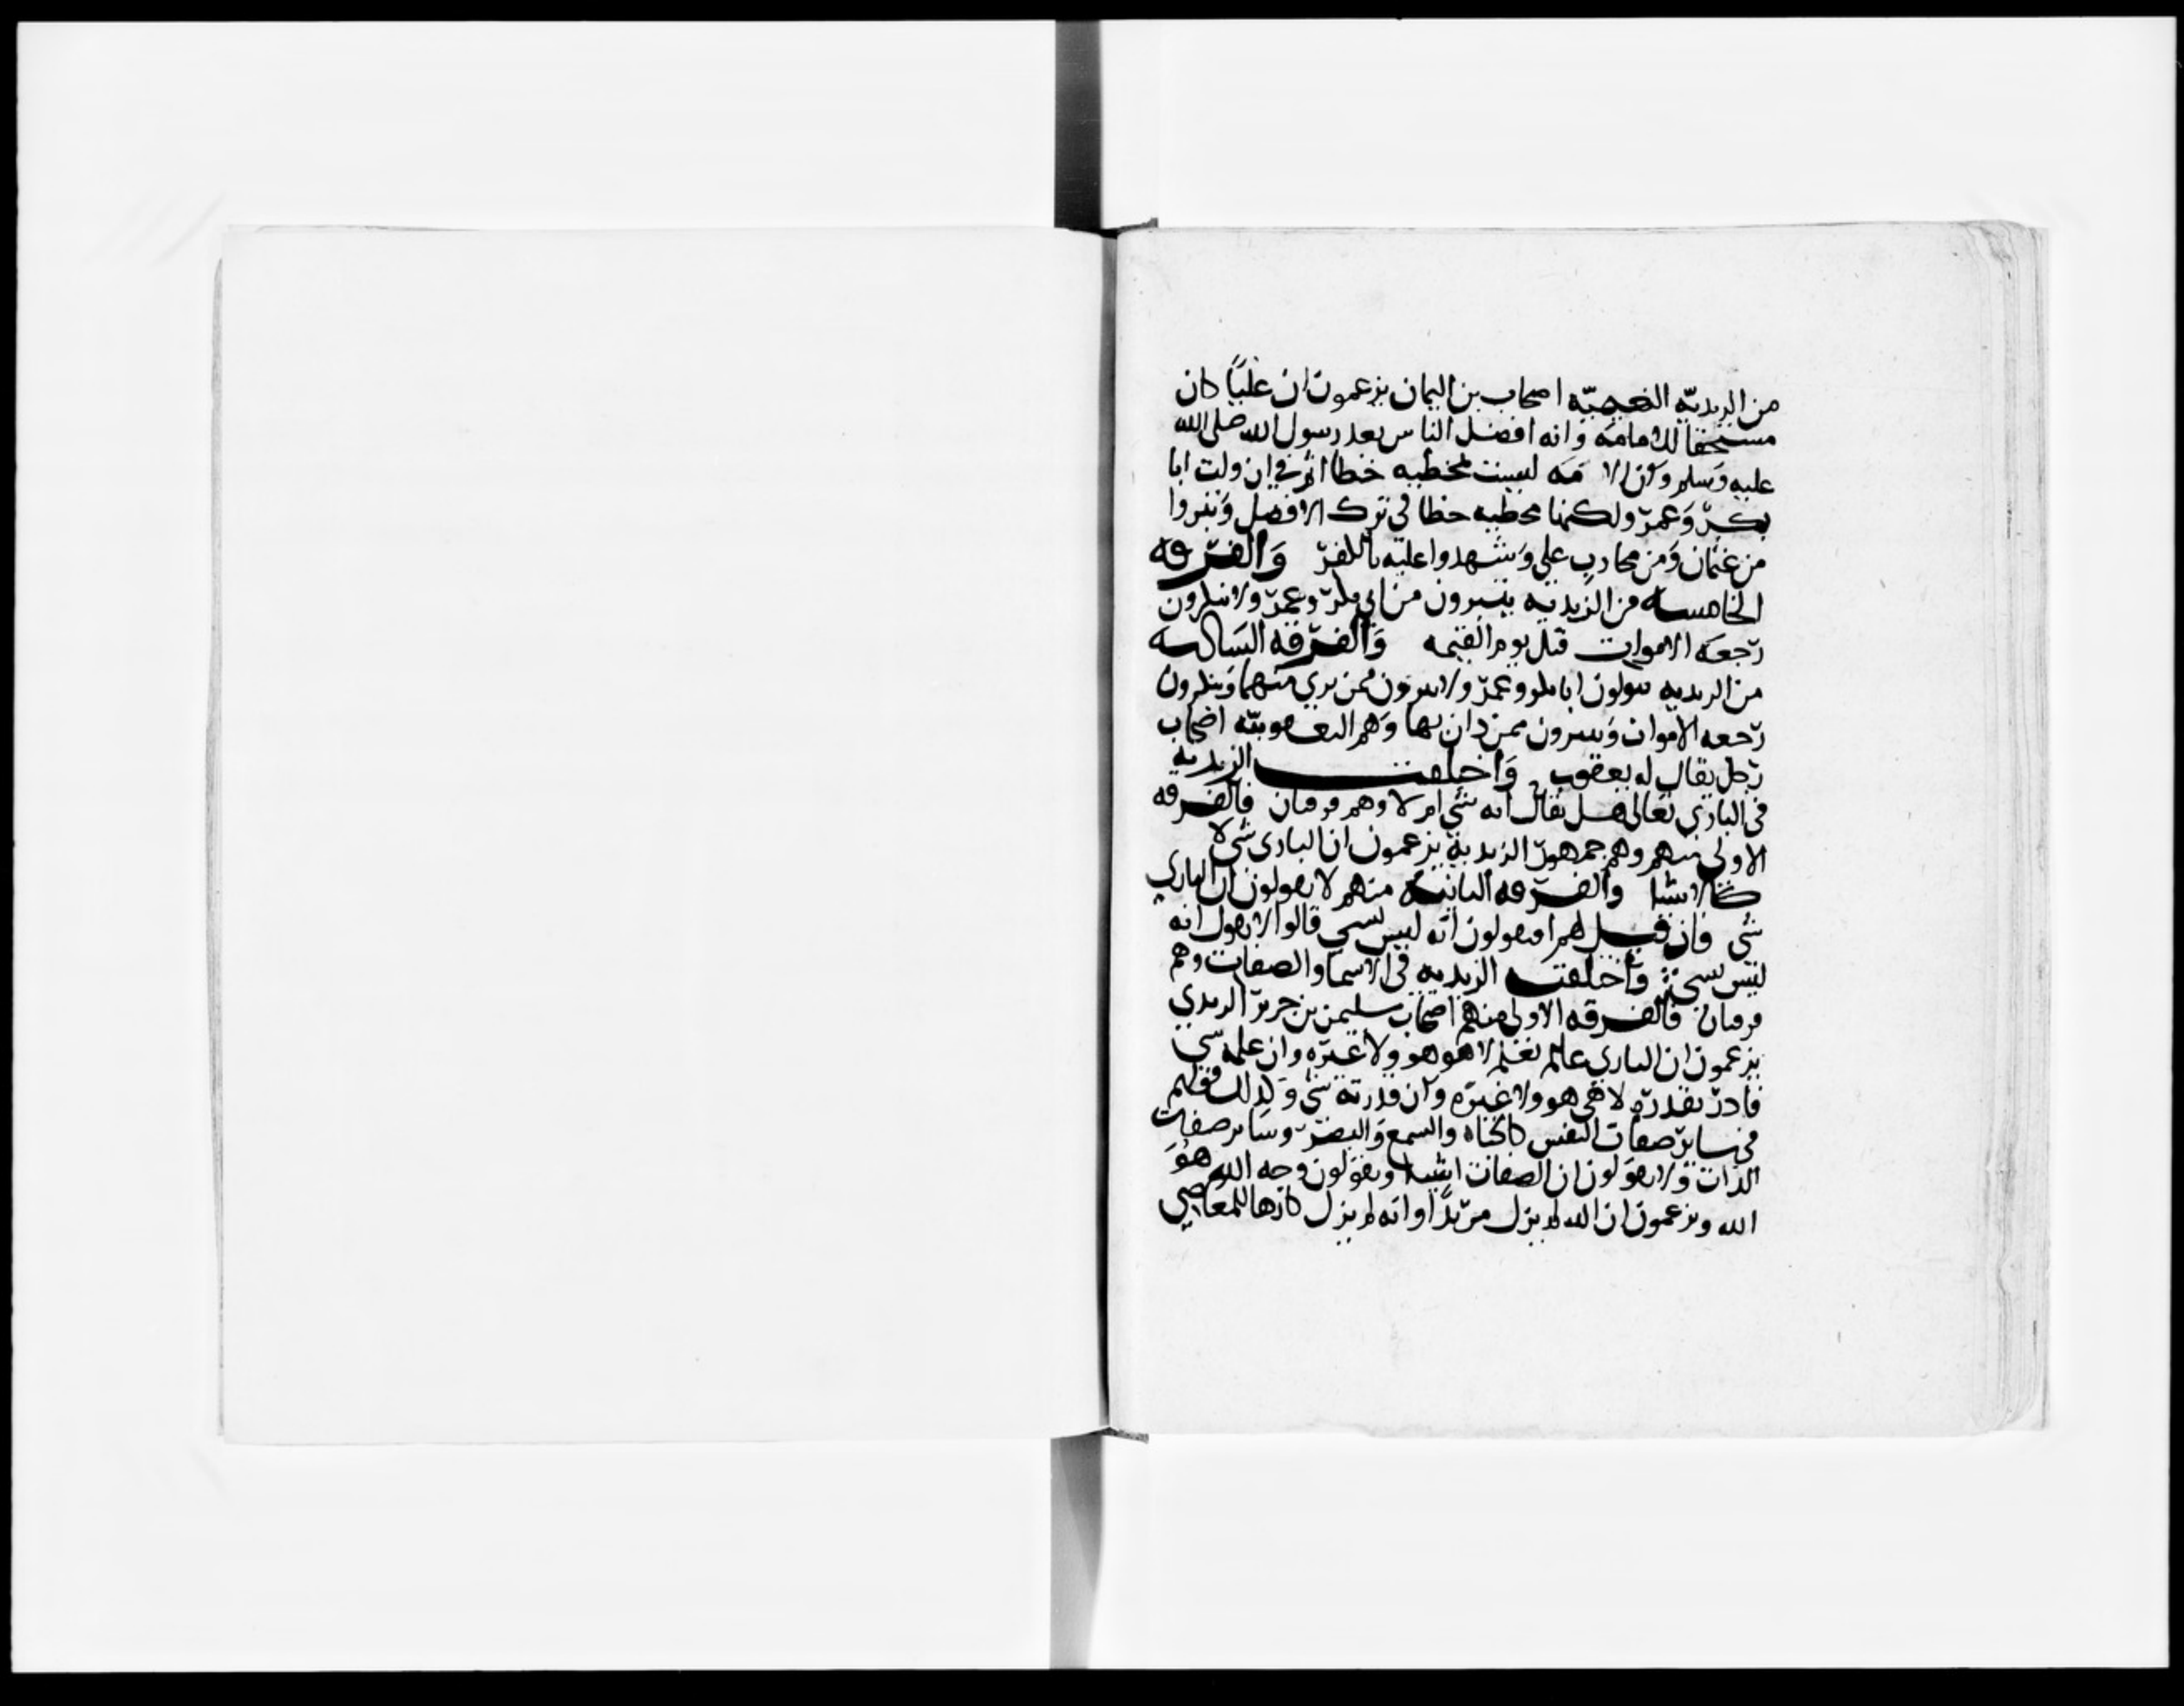 من الزيديه النعيميّه اصحاب بن اليمان يزعمون ان عليًّا كان
مستحقا للامامه وانه افضل الناس بعد رسول الله صلى الله
عليه وسلم وان الامه ليست بمخطيه خطا اثم في ان ولت ابا
بكر وعمر ولكنها مخطيه خطا في ترك الافضل وتبروا
من عثمان ومن محارب علي وشهدوا عليه بالكفر والفرقه
الخامسه من الزيديه يتبرون من ابي بكر وعمر ولا ينكرون
رجعه الاموات قبل يوم القيمه والفرقه السادسه
من الزيديه يتولون ابا بكر وعمر ولا يبرون ممن بري منهما وينكرون
رجعه الاموات ويتبرون ممن دان بها وهم اليعقوبيّه اصحاب
رجل يقال له يعقوب واختلفت الزيديه
في الباري تعالى هل يقال انه شي ام لا وهم فرقتان فالفرقه
الاولى منهم وهم جمهور الزيديه يزعمون ان الباري شي لا
كالاشيا والفرقه الثانيه منهم لا يقولون ان الباري
شي فان قيل لهم افتقولون انه ليس بشي قالوا لا نقول انه
ليس بشي واختلفت الزيديه في الاسما والصفات وهم
فرقتان فالفرقه الاولى منهم اصحاب سليمن بن جرير الزيدي
يزعمون ان الباري عالم بعلم لا هو هو ولا غيره وان علمه شي
قادر بقدره لا هي هو ولا غيره وان قدرته شي وكذلك قولهم
في ساير صفات النفس كالحياه والسمع والبصر وساير صفات
الذات ولا يقولون ان الصفات اشيا ويقولون وجه الله هو
الله ويزعمون ان الله لم يزل مريدًا وانه لم يزل كارها للمعاصي